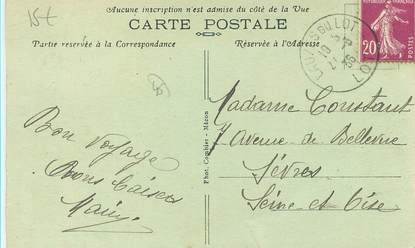 15t
Aucune inscription n'est admise du côté de la Vue
CARTE POSTALE
Partie reservée à la Correspondance
Réservée à l'Adresse
DU LOT
LOT
20
POSTES
Bon Voyage
Bons baisers
Phot. Combier - Mâcon
Madame Constant
7 Avenue de Bellevue
Sèvres
Seine et Oise